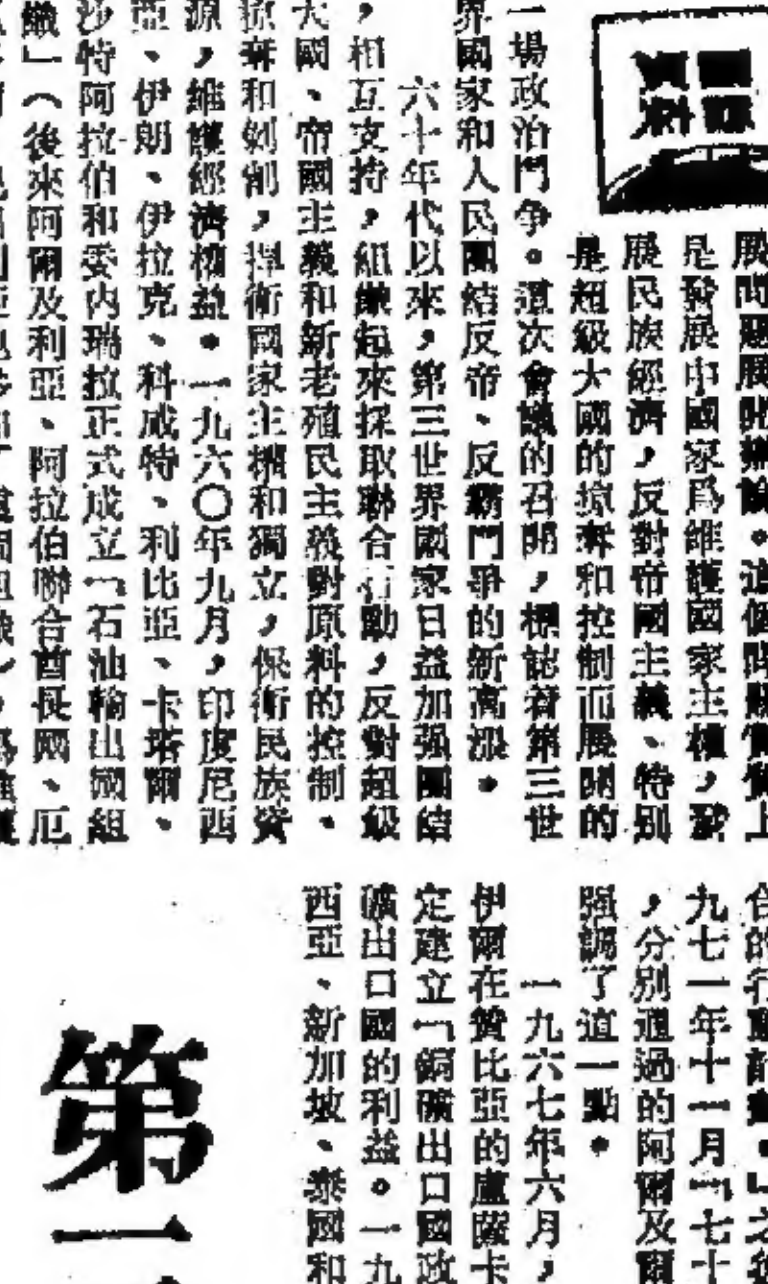 展問題展開辯論。這個問題實質上
是發展中國家爲維護國家主權，發
展民族經濟，反對帝國主義、特別
是超級大國的掠奪和控制而展開的
一場政治鬥争。這次會議的召開，標誌着第三世
界國家和人民團結反帝、反霸鬥爭的新高漲。
六十年代以來，第三世界國家日益加强團結
，相互支持，組織起來採取聯合行動，反對超級
大國、帝國主義和新老殖民主義對原料的控制、
掠奪和剝削，捍衛國家主權和獨立，保衛民族資
源，維護經濟權益。一九六〇年九月，印度尼西
亞、伊朗、伊拉克、科威特、利比亞、卡塔爾、
沙特阿拉伯和委內瑞拉正式成立「石油輸出國組
織」（後來阿爾及利亞、阿拉伯聯合酋長國、厄
合的行動
九七一年十一月「七十
，分別通過的阿爾及爾
强調了這一點。
一九六七年六月，
伊爾在贊比亞的盧薩卡
定建立「銅礦出口國政
礦出口國的利益。一九
西亞、新加坡、泰國和
第